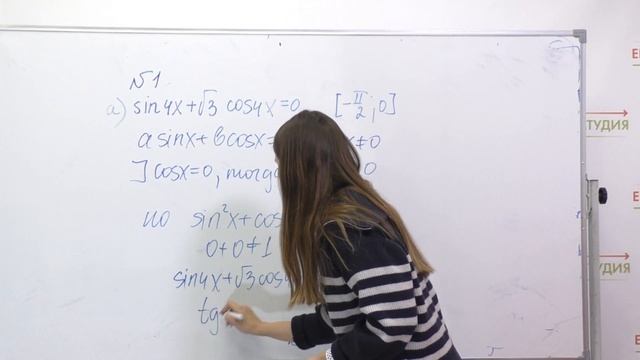 №1
а) sin4x+√3 cos4x=0 [-π/2;0]
asinx+bcosx=
≠0
] cosx=0, тогда
0
но sin²x+cos
0+0≠1
sin4x+√3cos4
tg
СТУДИЯ